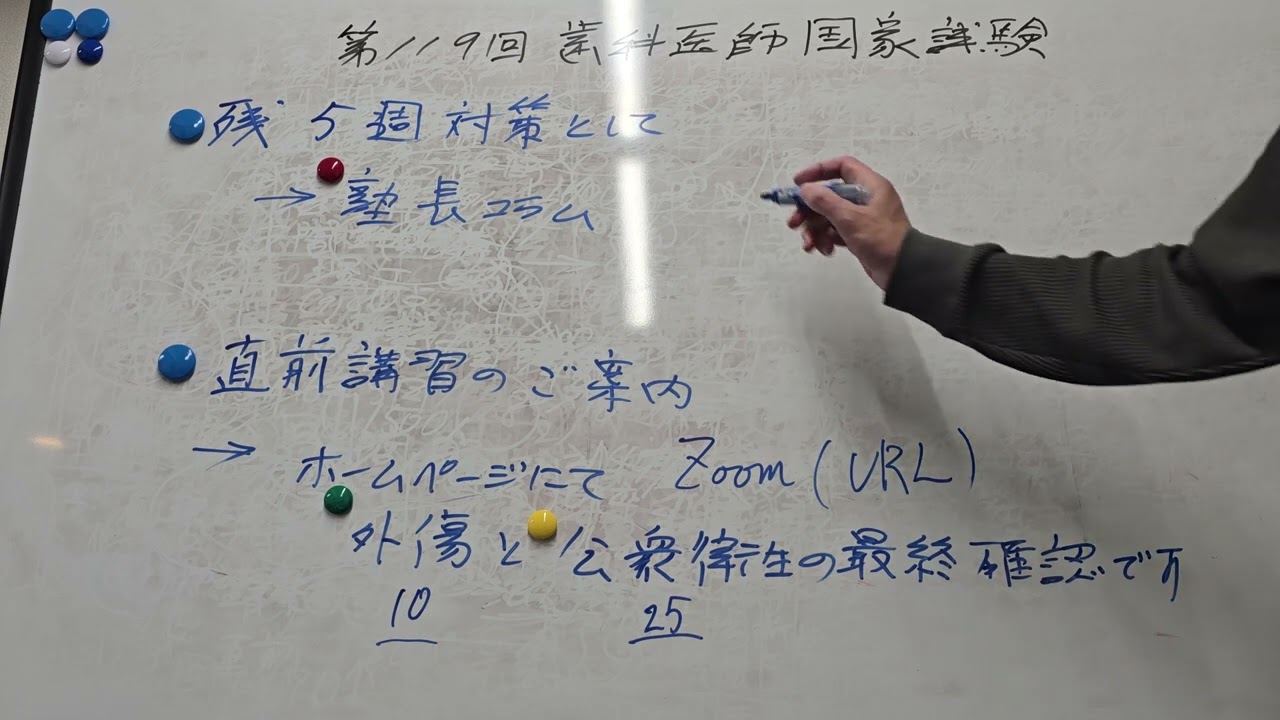 第119回 歯科医師国家試験
残 5週対策として
→ 塾長コラム
直前講習のご案内
→ ホームページにて Zoom (URL)
外傷と公衆衛生の最終確認です
10 25